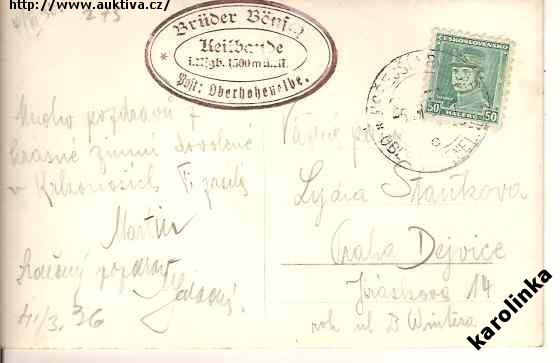 http://www.auktiva.cz/
Brüder Bönsch
Keilbaude
i. Rsgb. 1500 m ü. M.
Post: Oberhohenelbe.
ČESKOSLOVENSKO
50 50
HALÉŘŮ
Mnoho pozdravů z
krásné zimní dovolené
v Krkonoších Ti zasílá
Martin
Srdečný pozdrav
4./3. 36
Vážená
Lydia
Praha Dejvice
Jiráskova 14
roh ul B Wintera
karolinka